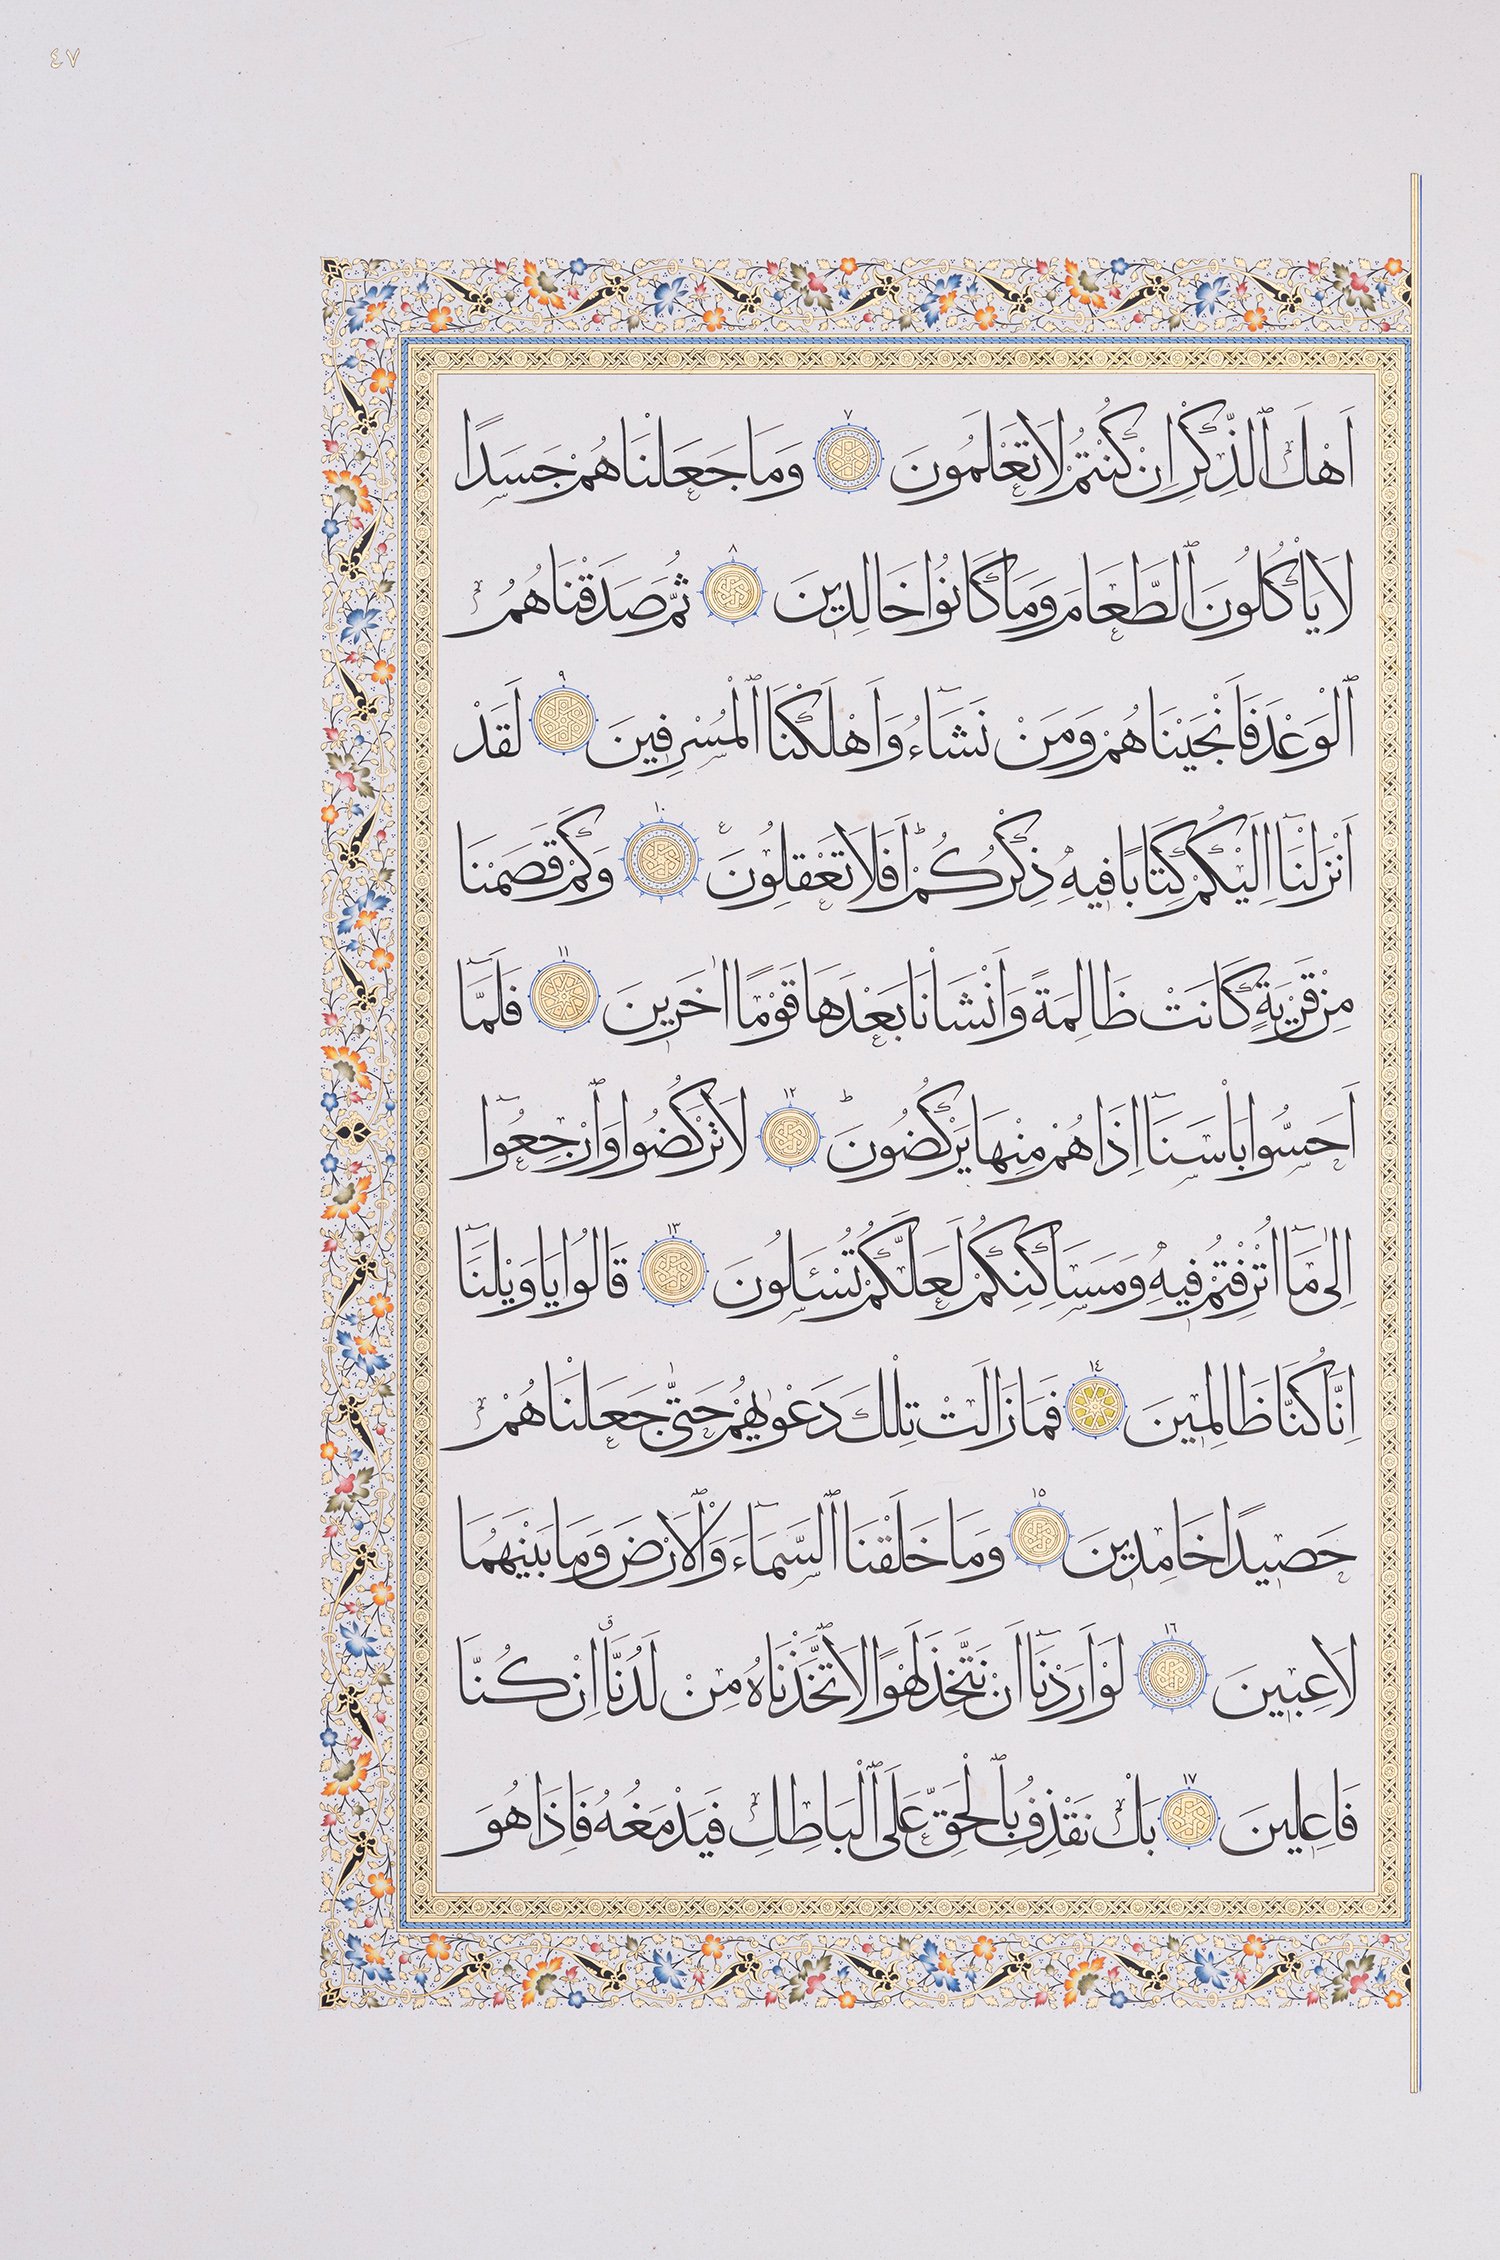 ٤٧
اَهْلَ ٱلذِّكْرِ اِنْ كُنْتُمْ لَا تَعْلَمُونَ ٧ وَمَا جَعَلْنَاهُمْ جَسَدًا
لَا يَأْكُلُونَ ٱلطَّعَامَ وَمَا كَانُوا خَالِدِينَ ٨ ثُمَّ صَدَقْنَاهُمُ
ٱلْوَعْدَ فَاَنْجَيْنَاهُمْ وَمَنْ نَشَٓاءُ وَاَهْلَكْنَا ٱلْمُسْرِفِينَ ٩ لَقَدْ
اَنْزَلْنَٓا اِلَيْكُمْ كِتَابًا فِيهِ ذِكْرُكُمْ ۜ اَفَلَا تَعْقِلُونَ ١٠ وَكَمْ قَصَمْنَا
مِنْ قَرْيَةٍ كَانَتْ ظَالِمَةً وَاَنْشَأْنَا بَعْدَهَا قَوْمًا اٰخَرِينَ ١١ فَلَمَّٓا
اَحَسُّوا بَأْسَنَٓا اِذَا هُمْ مِنْهَا يَرْكُضُونَ ؕ ١٢ لَا تَرْكُضُوا وَٱرْجِعُٓوا
اِلٰى مَٓا اُتْرِفْتُمْ فِيهِ وَمَسَاكِنِكُمْ لَعَلَّكُمْ تُسْـَٔلُونَ ١٣ قَالُوا يَا وَيْلَنَٓا
اِنَّا كُنَّا ظَالِمِينَ ١٤ فَمَا زَالَتْ تِلْكَ دَعْوٰيهُمْ حَتّٰى جَعَلْنَاهُمْ
حَصِيدًا خَامِدِينَ ١٥ وَمَا خَلَقْنَا ٱلسَّمَٓاءَ وَٱلْاَرْضَ وَمَا بَيْنَهُمَا
لَاعِبِينَ ١٦ لَوْ اَرَدْنَٓا اَنْ نَتَّخِذَ لَهْوًا لَاتَّخَذْنَاهُ مِنْ لَدُنَّٓا ۗ اِنْ كُنَّا
فَاعِلِينَ ١٧ بَلْ نَقْذِفُ بِٱلْحَقِّ عَلَى ٱلْبَاطِلِ فَيَدْمَغُهُ فَاِذَا هُوَ